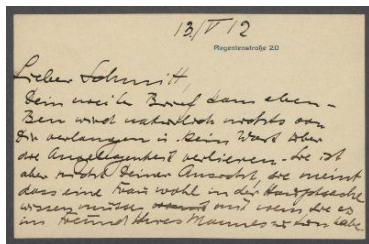 13/V 12
Regentenstraße 20
Lieber Schmitt,
Dein zweiter Brief kam eben –
Ben wird natürlich nichts von
Dir verlangen u kein Wort über
die Angelegenheit verlieren. Sie ist
aber nicht Deiner Ansicht, sie meint
dass eine Frau wohl in der Hauptsache
wissen müsse und wenn sie es
im Freund ihres Mannes